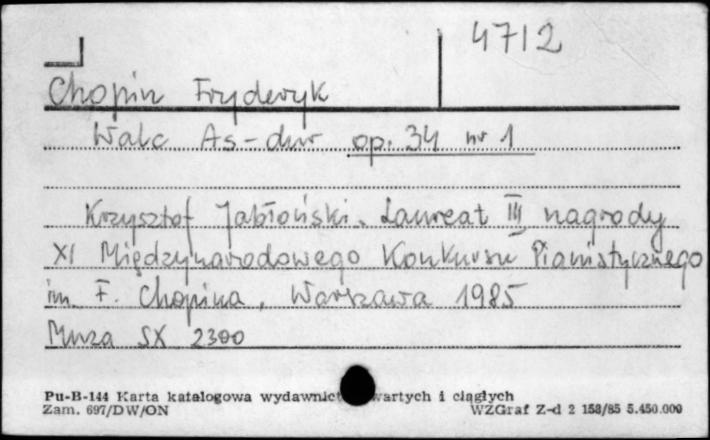 4712
Chopin Fryderyk
Walc As-dur op. 34 nr 1
Krzysztof Jabłoński. Laureat III nagrody
XI Międzynarodowego Konkursu Pianistycznego
im. F. Chopina, Warszawa 1985
Muza SX 2300
Pu-B-144 Karta katalogowa wydawnict wartych i ciągłych
Zam. 697/DW/ON WZGraf Z-d 2 153/85 5.450.000